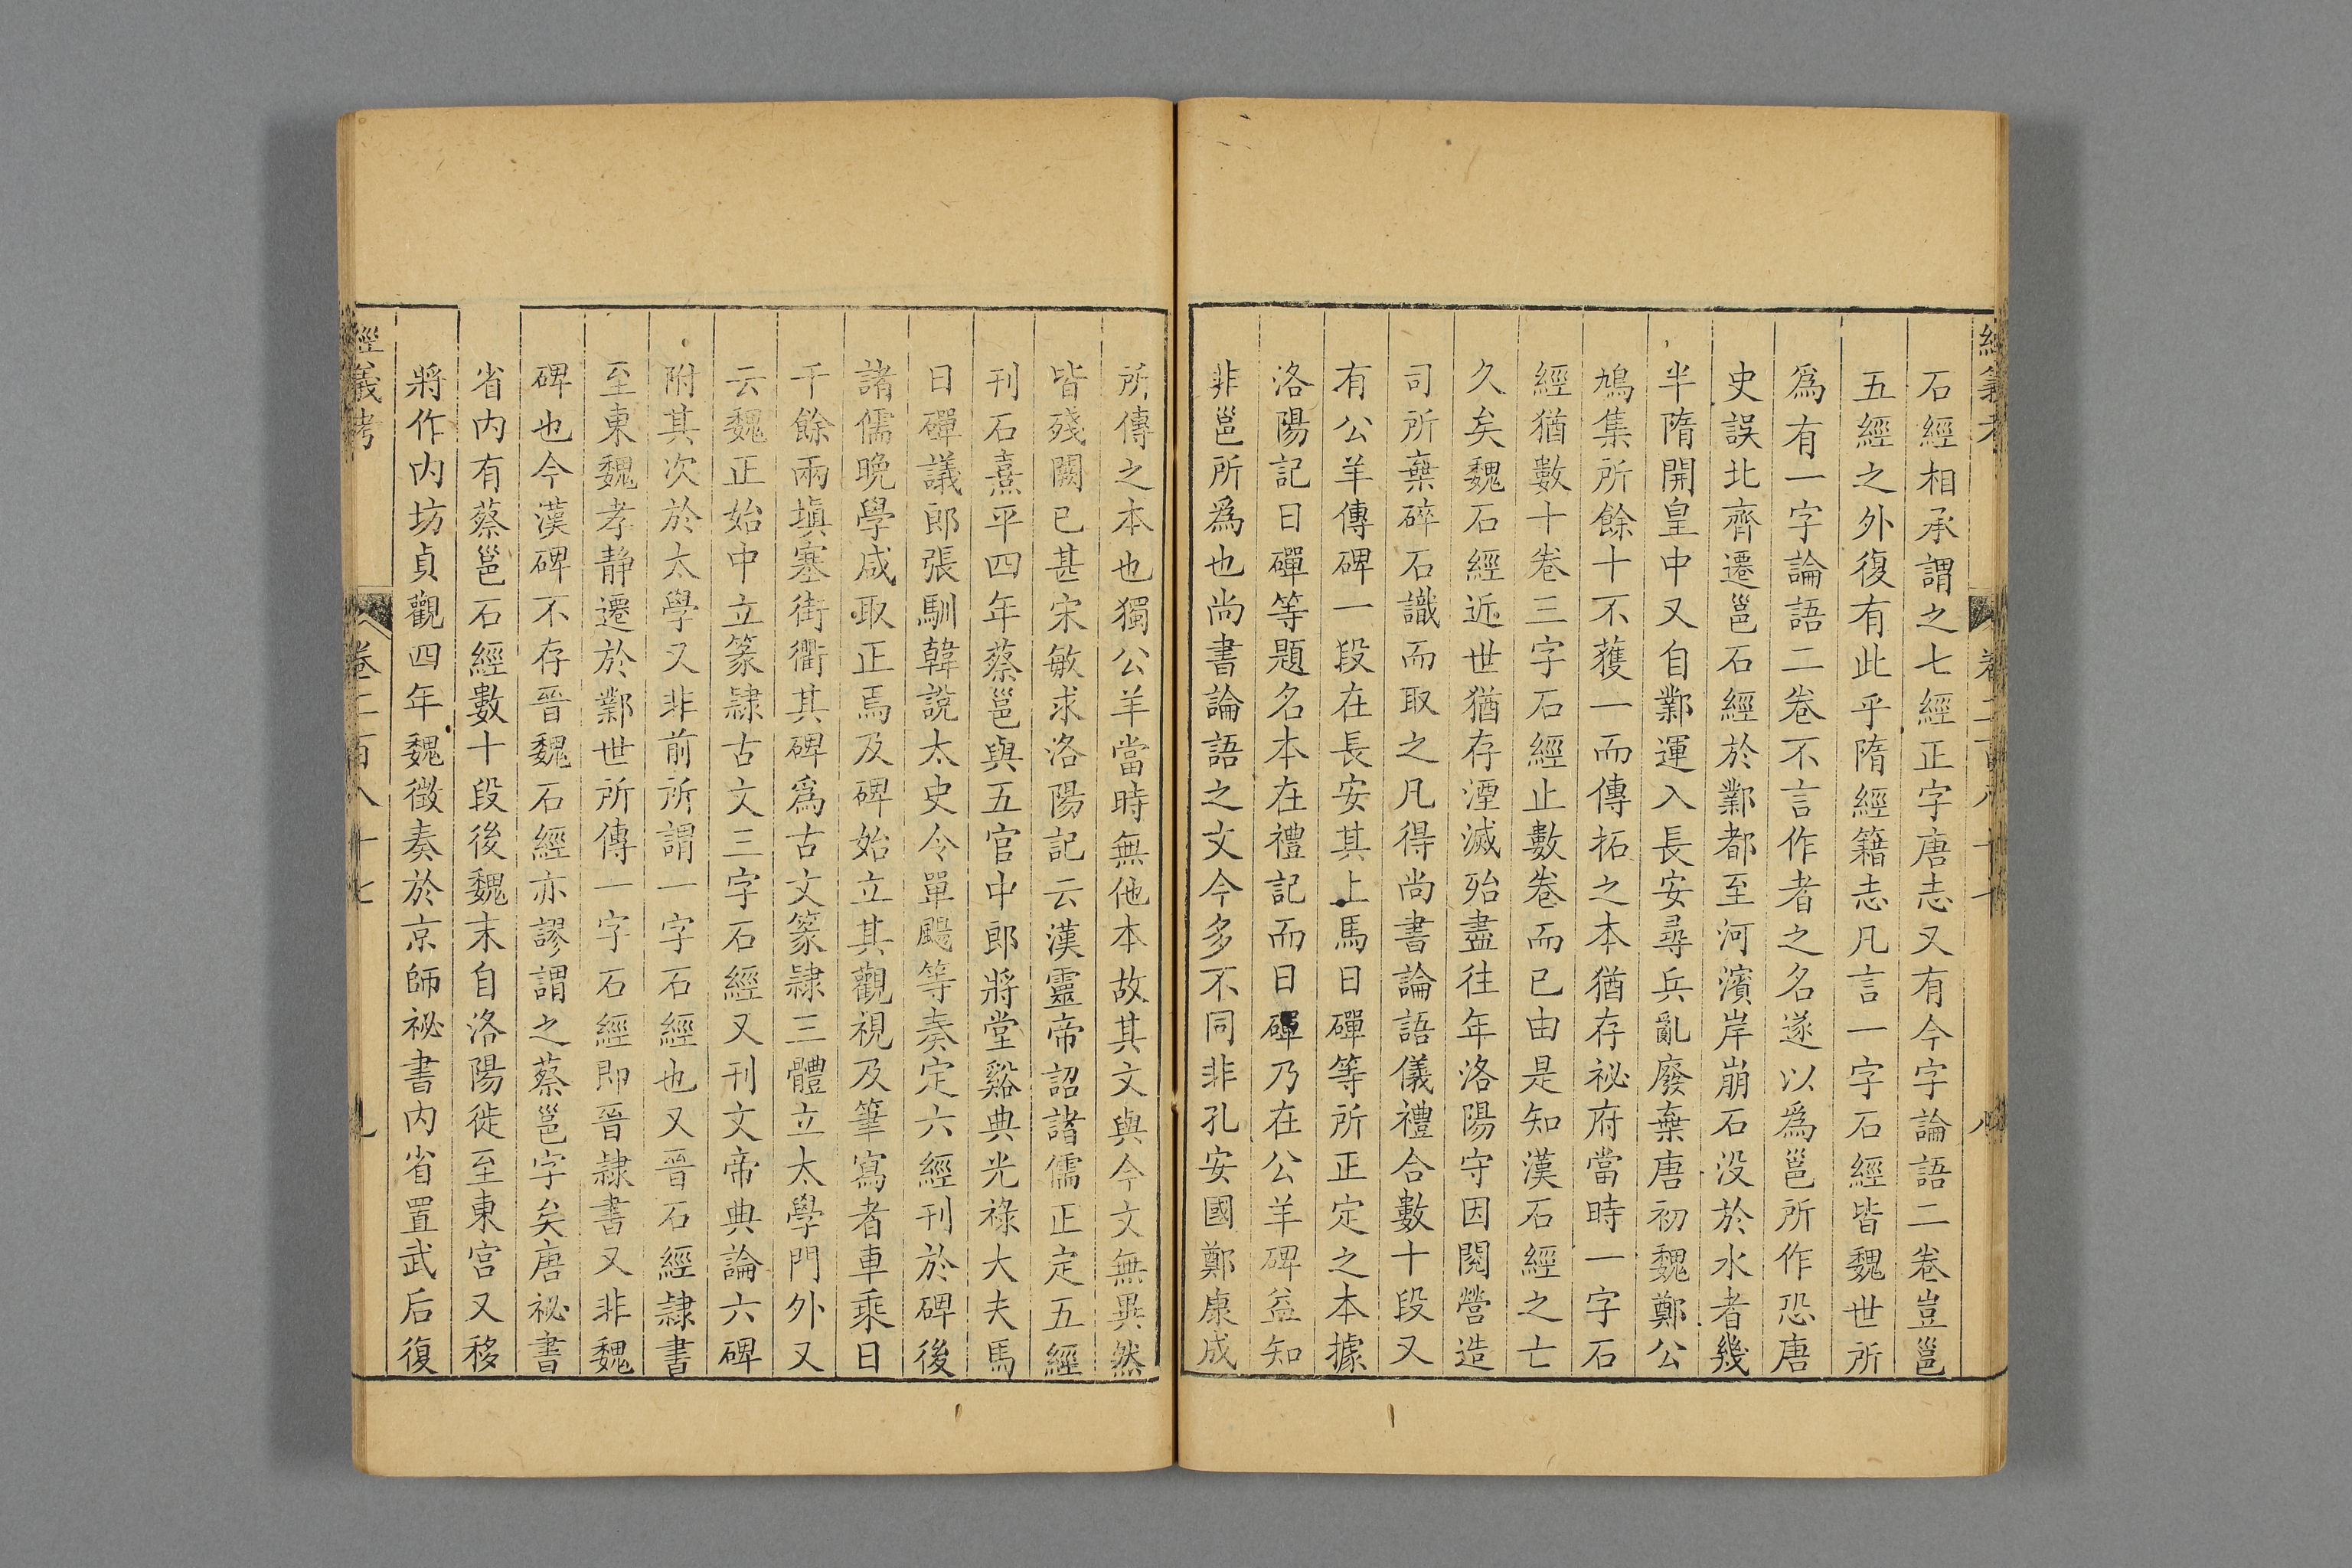 經義考
卷二百八十七
八
石經相承謂之七經正字唐志又有今字論語二卷豈邕
五經之外復有此乎隋經籍志凡言一字石經皆魏世所
爲有一字論語二卷不言作者之名遂以爲邕所作恐唐
史誤北齊遷邕石經於鄴都至河濱岸崩石没於水者幾
半隋開皇中又自鄴運入長安尋兵亂廢棄唐初魏鄭公
鳩集所餘十不獲一而傳拓之本猶存祕府當時一字石
經猶數十卷三字石經止數卷而已由是知漢石經之亡
久矣魏石經近世猶存湮滅殆盡往年洛陽守因閱營造
司所棄碎石識而取之凡得尚書論語儀禮合數十段又
有公羊傳碑一段在長安其上馬日磾等所正定之本據
洛陽記日磾等題名本在禮記而日磾乃在公羊碑益知
非邕所爲也尚書論語之文今多不同非孔安國鄭康成
所傳之本也獨公羊當時無他本故其文與今文無異然
皆殘闕已甚宋敏求洛陽記云漢靈帝詔諸儒正定五經
刊石熹平四年蔡邕與五官中郎將堂谿典光祿大夫馬
日磾議郎張馴韓說太史令單颺等奏定六經刊於碑後
諸儒晚學咸取正焉及碑始立其觀視及筆寫者車乘日
千餘兩塡塞街衢其碑爲古文篆隷三體立太學門外又
云魏正始中立篆隷古文三字石經又刊文帝典論六碑
附其次於太學又非前所謂一字石經也又晉石經隷書
至東魏孝静遷於鄴世所傳一字石經即晉隷書又非魏
碑也今漢碑不存晉魏石經亦謬謂之蔡邕字矣唐祕書
省内有蔡邕石經數十段後魏末自洛陽徙至東宫又移
將作内坊貞觀四年魏徵奏於京師祕書内省置武后復
經義考
卷二百八十七
九